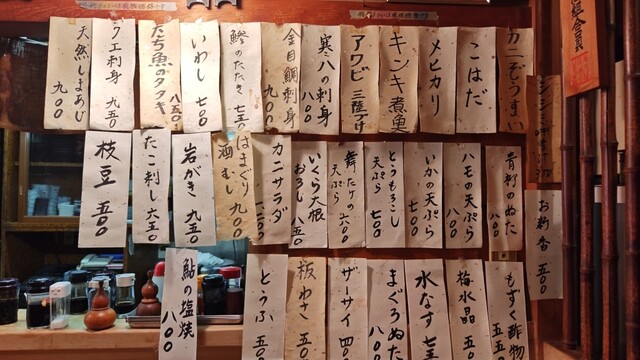 カニぞうすい
こはだ
メヒカリ
キンキ煮魚
アワビ
寒八の刺身
八〇〇
金目鯛刺身
九〇〇
鯵のたたき
七五〇
いわし
七〇〇
たち魚のタタキ
八五〇
クエ刺身
九五〇
天然しまあじ
九〇〇
青柳のぬた
八〇〇
ハモの天ぷら
八〇〇
いかの天ぷら
七〇〇
とうもろこし
天ぷら
七〇〇
舞たけの
天ぷら
六〇〇
いくら大根
おろし
八五〇
カニサラダ
一二〇〇
はまぐり
酒むし
九〇〇
岩がき
九五〇
たこ刺し
六五〇
枝豆
五〇〇
お新香
五〇〇
もずく酢物
五五〇
梅水晶
五〇
水なす
七五
まぐろぬた
八〇〇
ザーサイ
四〇
板わさ
五〇
とうふ
五〇
鮎の塩焼
八〇〇